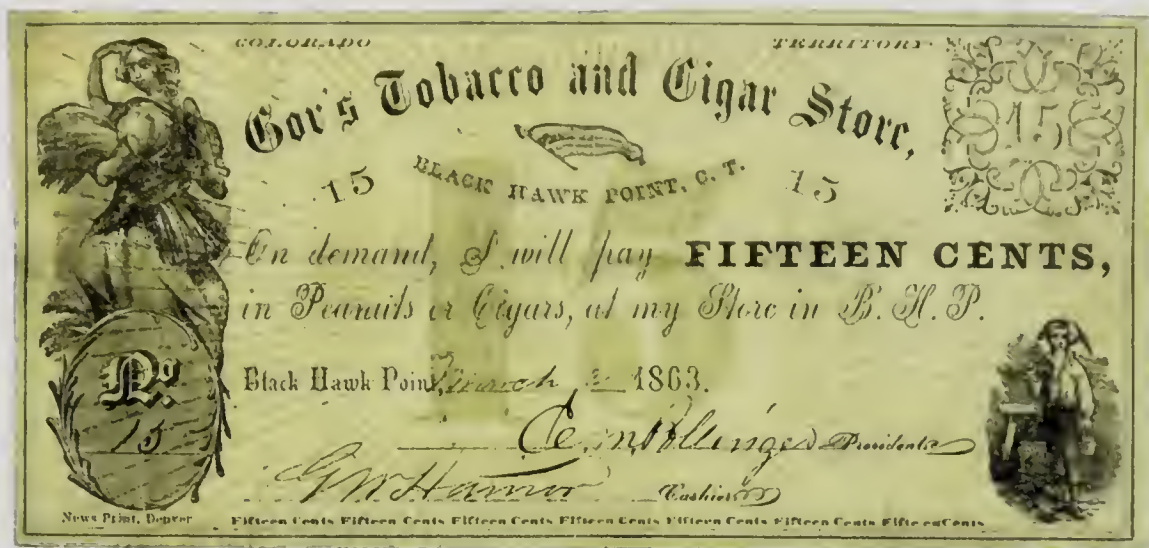 COLORADO TERRITORY.
Gov's Tobacco and Cigar Store,
15
15 BLACK HAWK POINT, C. T. 15
On demand, I will pay FIFTEEN CENTS,
in Peanuts or Cigars, at my Store in B. H. P.
No.
15
Black Hawk Point, March 1863.
President
Cashier
News Print, Denver
Fifteen Cents Fifteen Cents Fifteen Cents Fifteen Cents Fifteen Cents Fifteen Cents Fifteen Cents